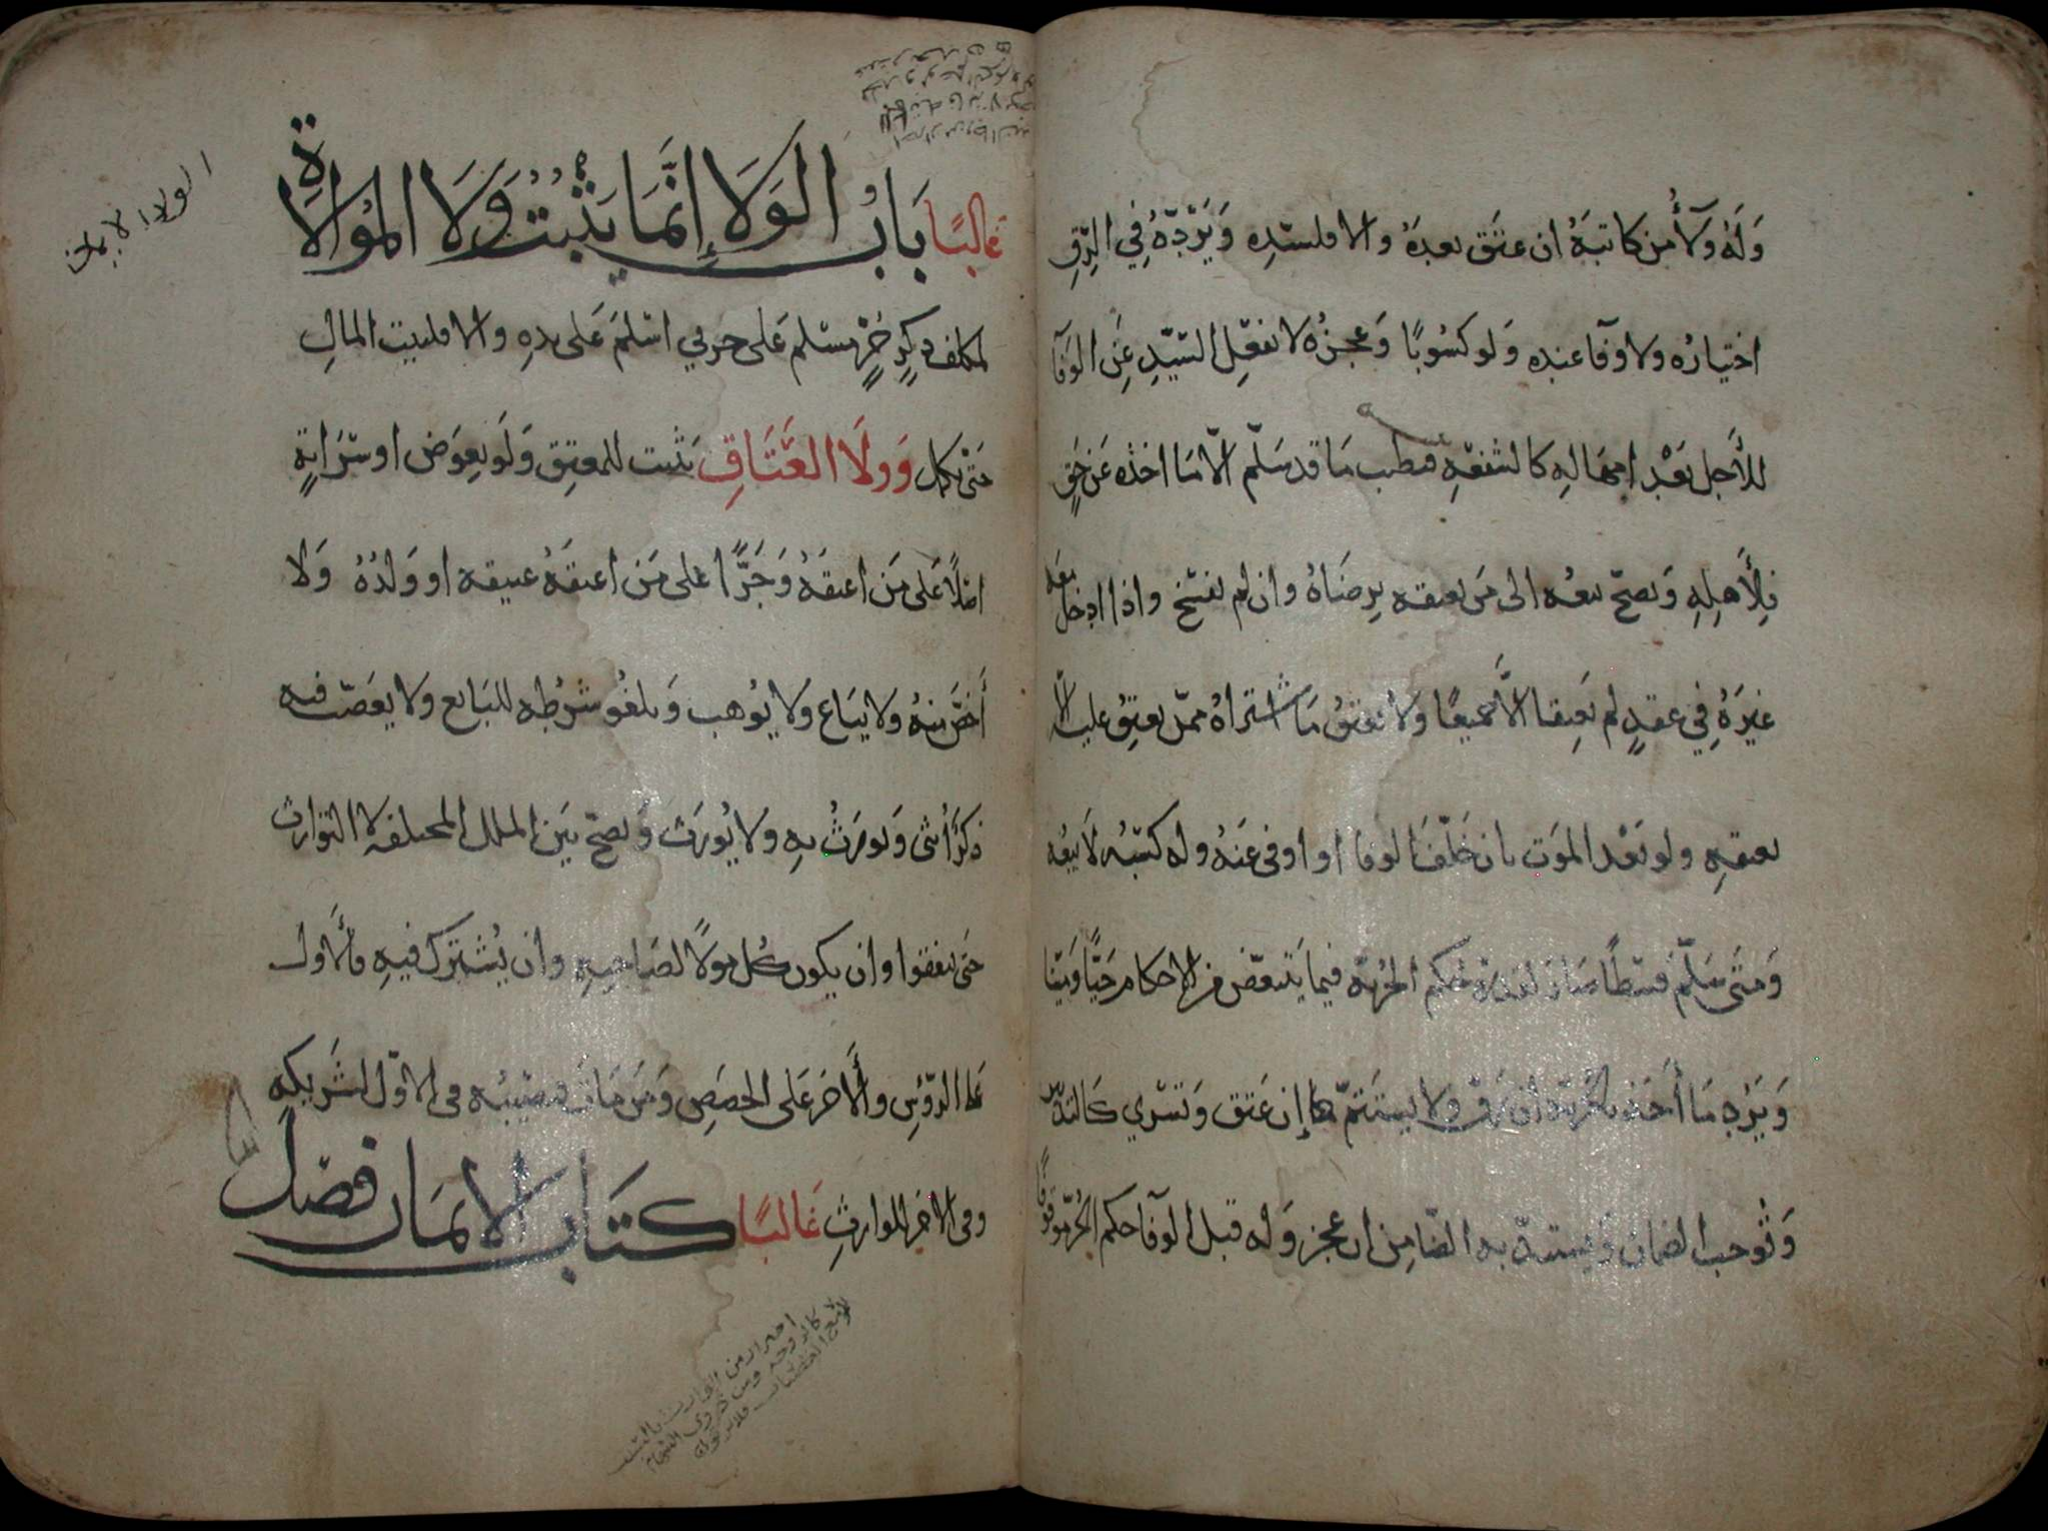 وَلَهُ وَلَآءُ مَن كاتبَهُ ان عتَق بعدَهُ والا فلسيّدِه وَيَرُدّهُ فِي الرِّقِ
اختيارُه ولا وفآ عنده وَلو كسُوبًا وَعجزُه لا بفعْلِ السّيّدِ عَنِ الوَفآ
للأَجل بَعْد امهالهِ كالشفعهِ فيطيب مَا قد سَلّم الّا مَا اخذه عَن حَقٍ
فلِأَهلِهِ وَيصحّ بيعُه الى مَن يعتقه بِرِضَاهُ وان لم يفسخ واذا ادخل معَه
غيَرهُ فِي عقدٍ لم يَعتِقا الَّا جميعًا ولا يعتِقُ مَا اشتراهُ ممّن يعتِقُ عليه الّا
بعتقهِ ولو بَعْد المَوت بان خَلّفَ الوفا او اوفى عَنهُ وله كسبُه لَا بيعُه
وَمتَى سَلّم قسْطًا صَارَ لقدره حُكم الحُرّيّه فيما يَتبعّض من الاحكام حَيًّا وَميّتا
وَيَرُد مَا أَخَذ بالحُرّيّه ان رَقّ ولا يستَتمّ ان عَتق وَتسْري كالتدبير
وَتُوجب الضمان وَيستبدّ به الضّامِن ان عجز وَله قبل الوفآ حكم الحُرّ موقوفًا
غالبًا بَابُ الوَلَا إنَّمَا يَثْبُتُ وَلَا المُوالاةِ
لمكلف ذكرٍ حُرٍّ مسْلم عَلى حربي اسْلمَ عَلى يدِهِ والا فلبيت المالِ
حَتى يكمل وَوِلَا العَتَاقِ يَثبت للمعتِق وَلَو بعِوَض او سرَايةٍ
اصْلًا عَلى مَن اعتقَهُ وَجَرًّا على مَن اعتقَهُ عتيقه او وَلدُهُ وَلا
أَخصَّ منهُ ولا يبَاع ولا يُوهب وَيلغُو شرْطُه للبَايع ولا يعَصّب فيه
ذكرٌ أُنثى وَيورَثُ بهِ ولا يُورَث وَيصحّ بَينَ الملل المختلفه لا التوارث
حَتى يتفقوا وان يكون كُل مَولًا لصَاحبهِ وان يُشترَك فيهِ والأَول
عَلى الرّؤسِ وألآخَر عَلى الحِصَصِ وَمَن مَات فنصيبُه في الاوّل لشريكِهِ
وفي الآخر للوارثِ غَالبًا كتَاب الايمَان فصْل